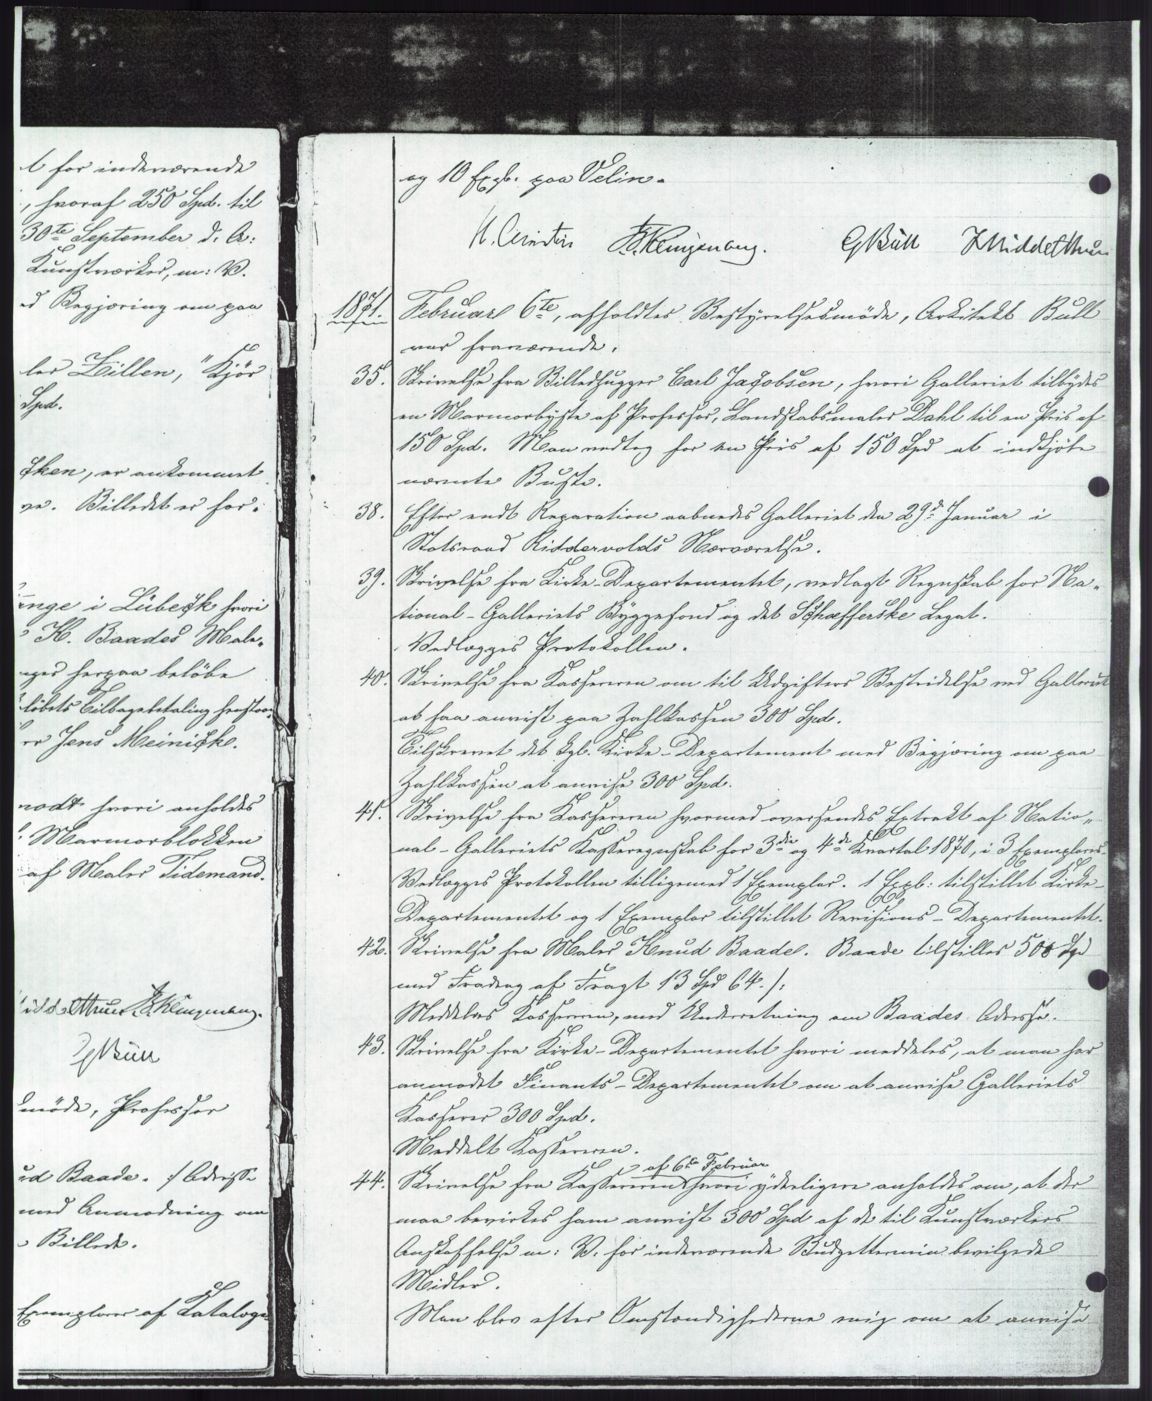 t for indeværende
, hvoraf 250 Spd. til
30te September d. A:
Kunstværker, m: V.
ed Begjæring om paa
ler Zillen, "Kjör
Spd.
sken, er ankommet
ve. Billedet er for-
enge i Lübeck hvori
K. Baades Male-
nges herpaa beløbe
løbets Tilbagebetaling
er Jens Meinicke.
modt hvori anholdes
Marmorblokken
af Maler Tidemand.
Middelthun
GBull
smöde, Professor
ud Baade. Adresse
med Anmodning om
Billede.
Exemplarer af Kataloge
og 10 Expl. paa Velin.
GBull Middelthun
1871. Februar 6te, afholdtes Bestyrelsesmöde, Arkitekt Bull
var fraværende.
35. Skrivelse fra Billedhugger Carl Jacobsen, hvori Galleriet tilbydes
en Marmorbyste af Professor, Landskabsmaler Dahl til en Pris af
150 Spd. Man vedtog for en Pris af 150 Spd at indkjöbe
nævnte Buste.
38. Efter endt Reparation aabnedes Galleriet den 29de Januar i
Statsraad Riddervolds Nærværelse.
39. Skrivelse fra Kirke-Departementet, vedlagt Regnskab for Na-
tional-Galleriets Byggefond og det Schaefferske Legat.
Vedlægges Protokollen.
40. Skrivelse fra Kassereren om til Udgifters Bestridelse ved Galleriet
at faa anvist paa Zahlkassen 300 Spd.
Tilskrevet det kgl. Kirke-Departement med Begjæring om paa
Zahlkassen at anvise 300 Spd.
41. Skrivelse fra Kassereren hvormed oversendes Extrakt af Natio-
nal-Galleriets Kasseregnskab for 3die og 4de Kvartal 1870, i 3 Exemplarer.
Vedlægges Protokollen tilligemed 1 Exemplar. 1 Expl: tilstillet Kirke-
Departementet og 1 Exemplar tilstillet Revisions-Departementet.
42. Skrivelse fra Maler Knud Baade. Baade tilstilles 500 Spd
med Fradrag af Fragt 13 Spd 64.
Meddeles Kassereren, med Underretning om Baades Adresse.
43. Skrivelse fra Kirke-Departementet hvori meddeles, at man har
anmodet Finants-Departementet om at anvise Galleriets
Kasserer 300 Spd.
Meddelt Kassereren.
af 6te Februar
44. Skrivelse fra Kassereren hvori yderligere anholdes om, at der
maa bevirkes ham anvist 300 Spd af de til Kunstværkers
Anskaffelse m: V. for indeværende Budgettermin bevilgede
Midler.
Man blev efter Omstændighederne enig om at anvise